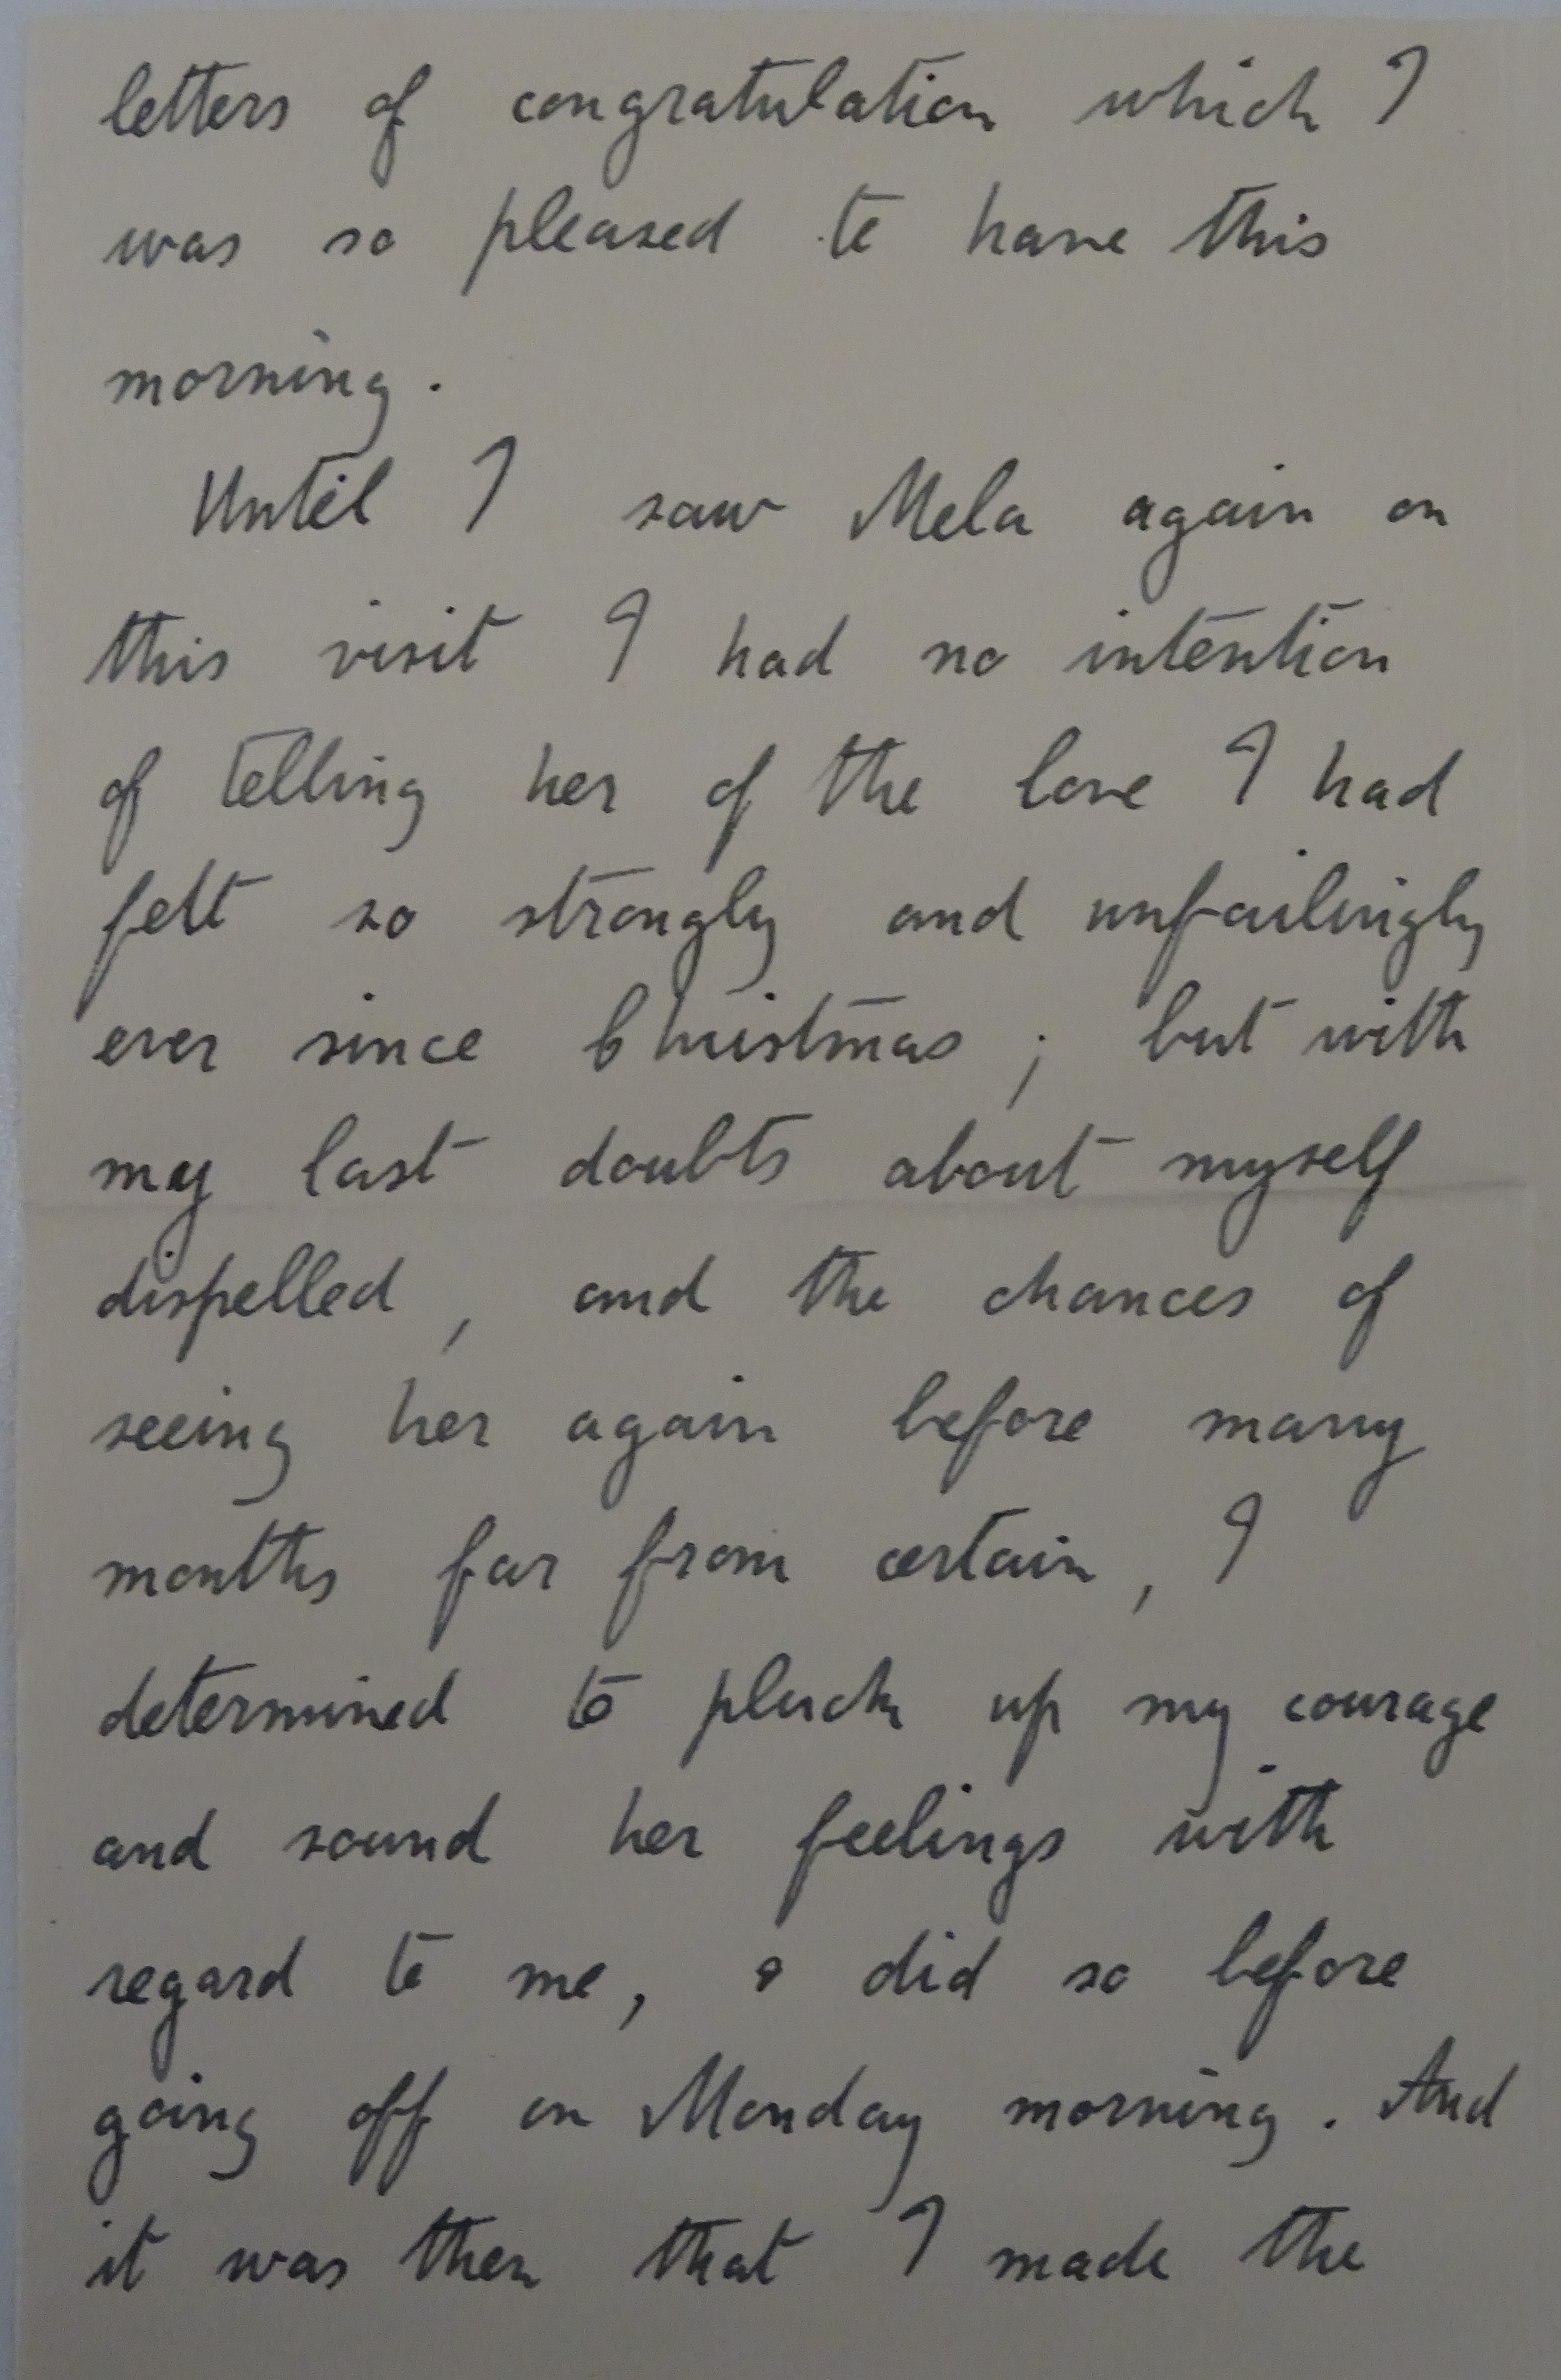 letters of congratulation which I
was so pleased to have this
morning.
Until I saw Mela again on
this visit I had no intention
of telling her of the love I had
felt so strongly and unfailingly
ever since Christmas; but with
my last doubts about myself
dispelled, and the chances of
seeing her again before many
months far from certain, I
determined to pluck up my courage
and sound her feelings with
regard to me, & did so before
going off on Monday morning. And
it was then that I made the